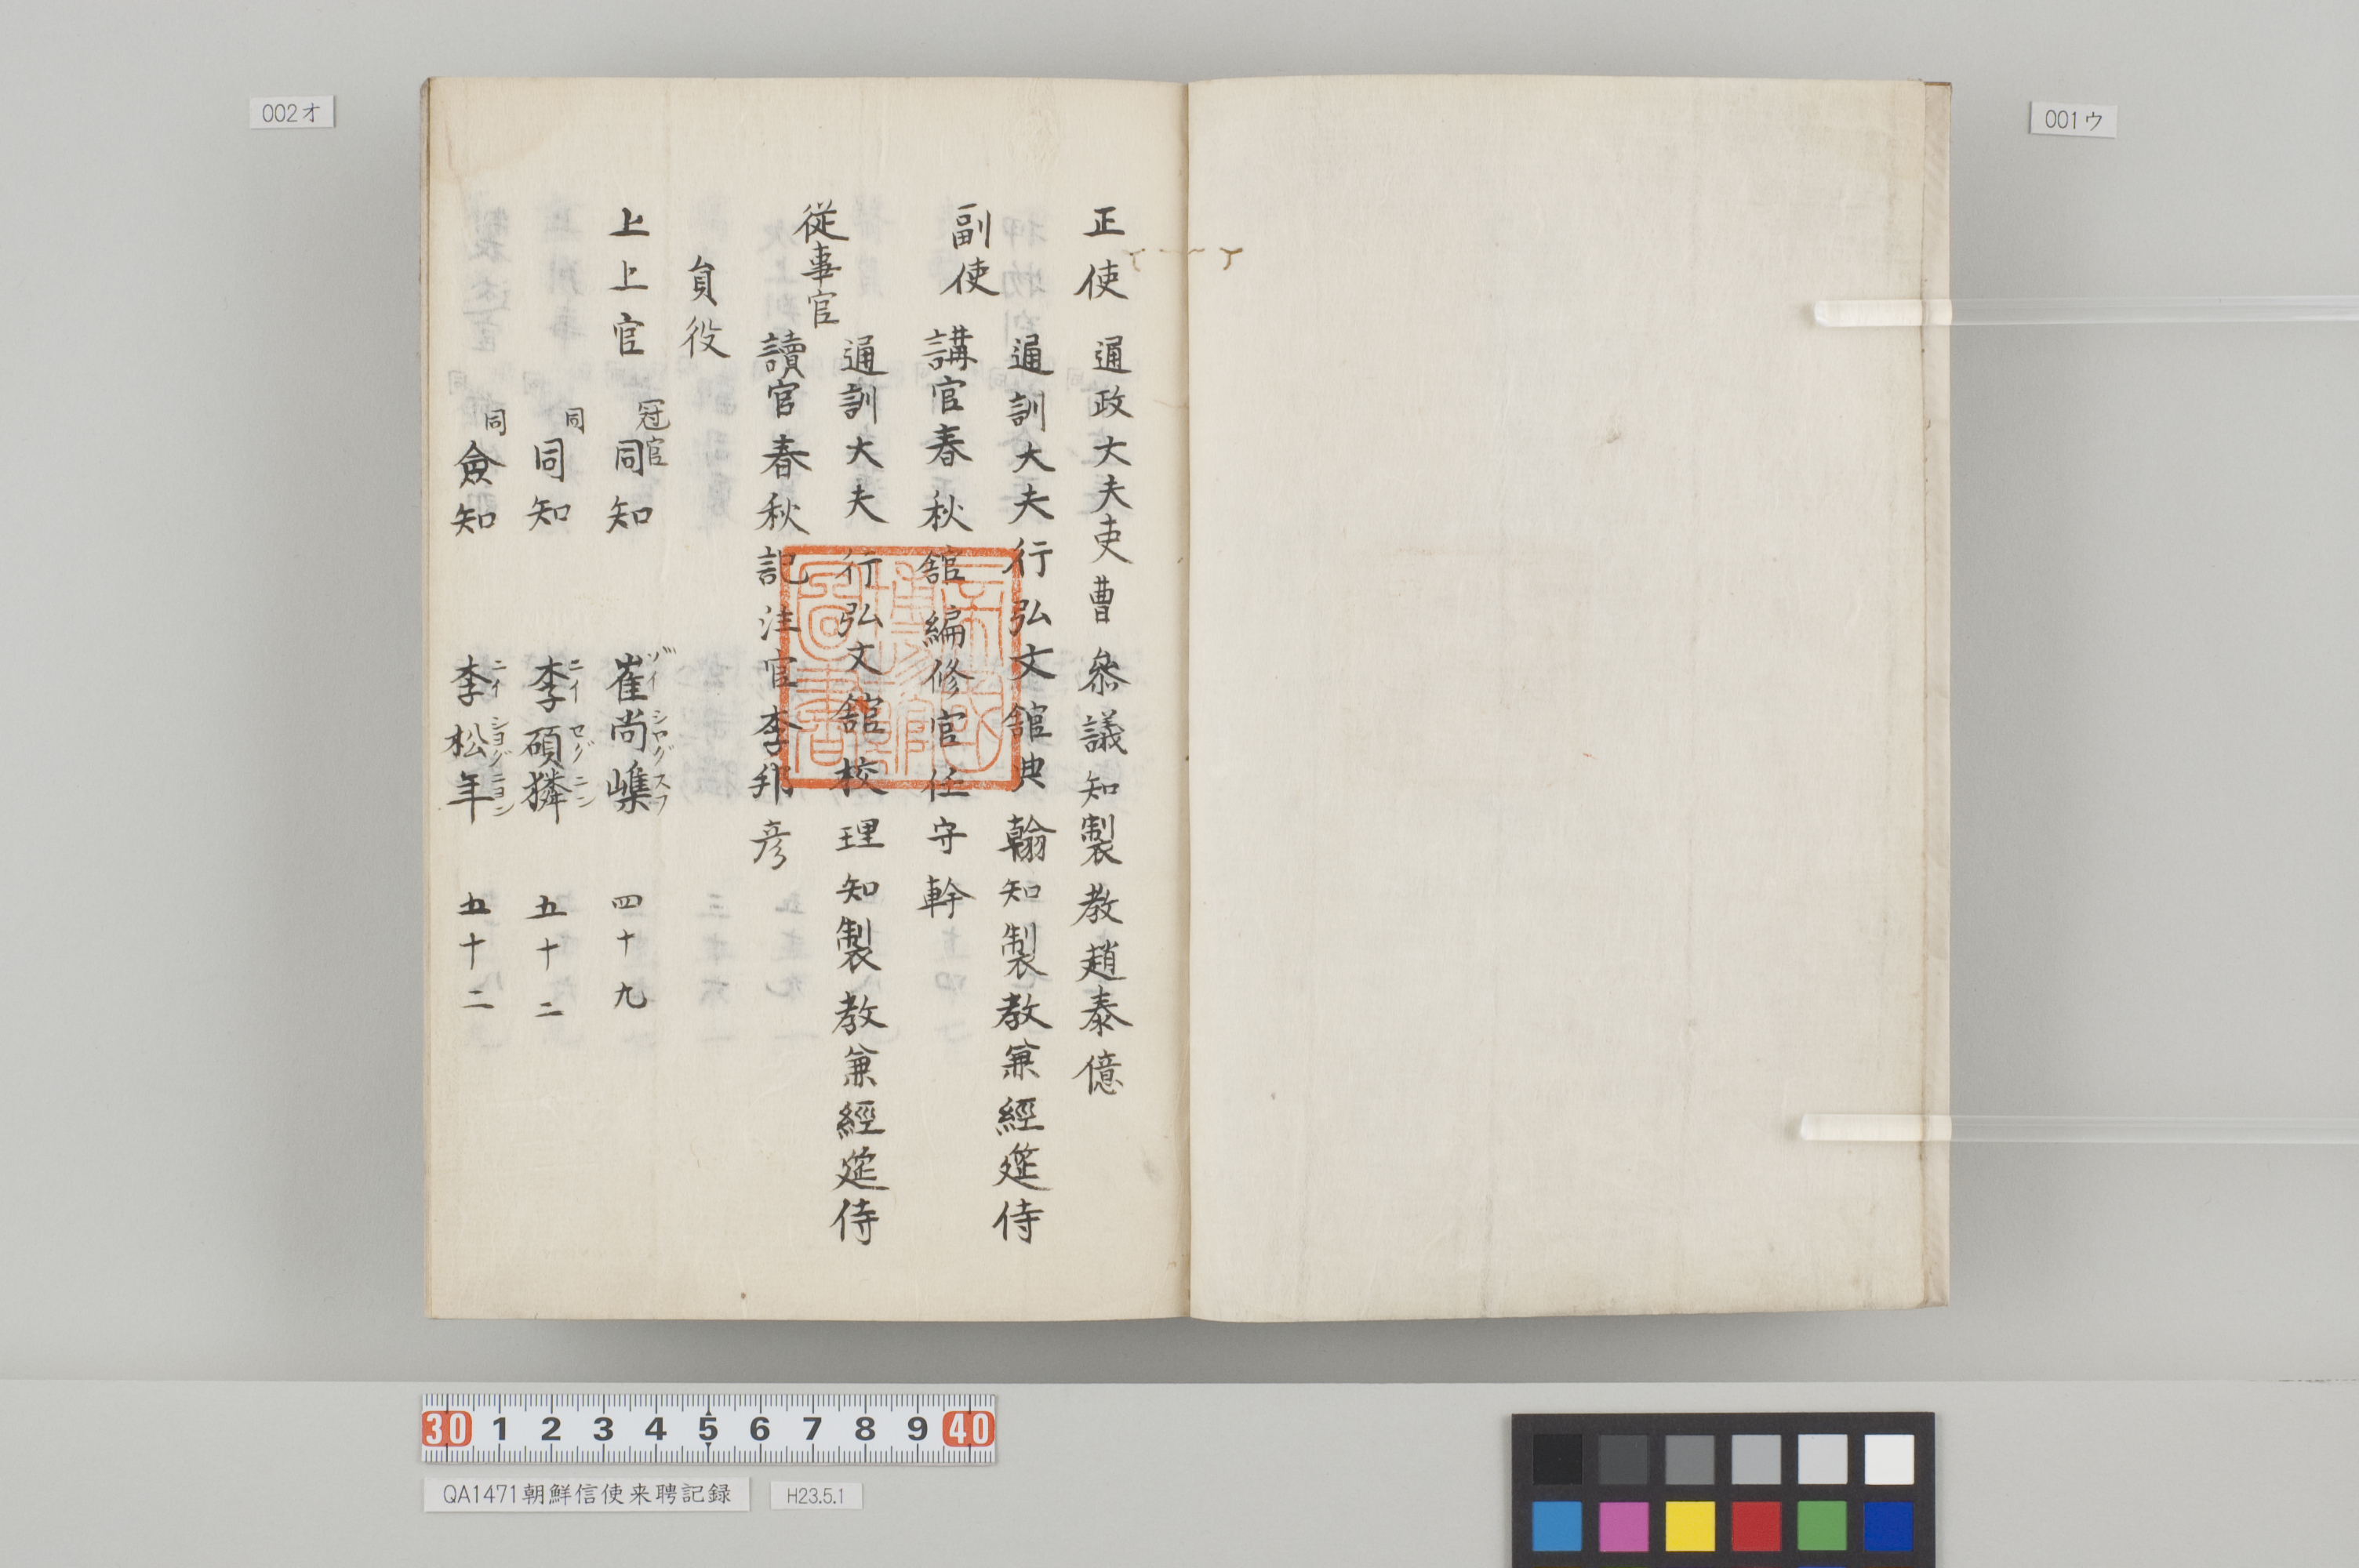 001ウ
002オ
正使 通政大夫吏曹叅議知製教趙泰億
副使
通訓大夫行弘文舘典翰知製教兼經筵侍
講官春秋舘編修官任守幹
従事官
通訓大夫行弘文舘校理知製教兼經筵侍
讀官春秋記注官李邦彦
負役
上上官 冠官 同知 崔尚㠎 四十九
ヅイ シログ スフ
同 同知 李碩獜 五十二
ニイ セグ ニン
同 僉知 李松年 五十二
ニイ シヨグ ニヨン
帝國博物館圖書
30 1 2 3 4 5 6 7 8 9 40
QA1471朝鮮信使来聘記録
H23.5.1